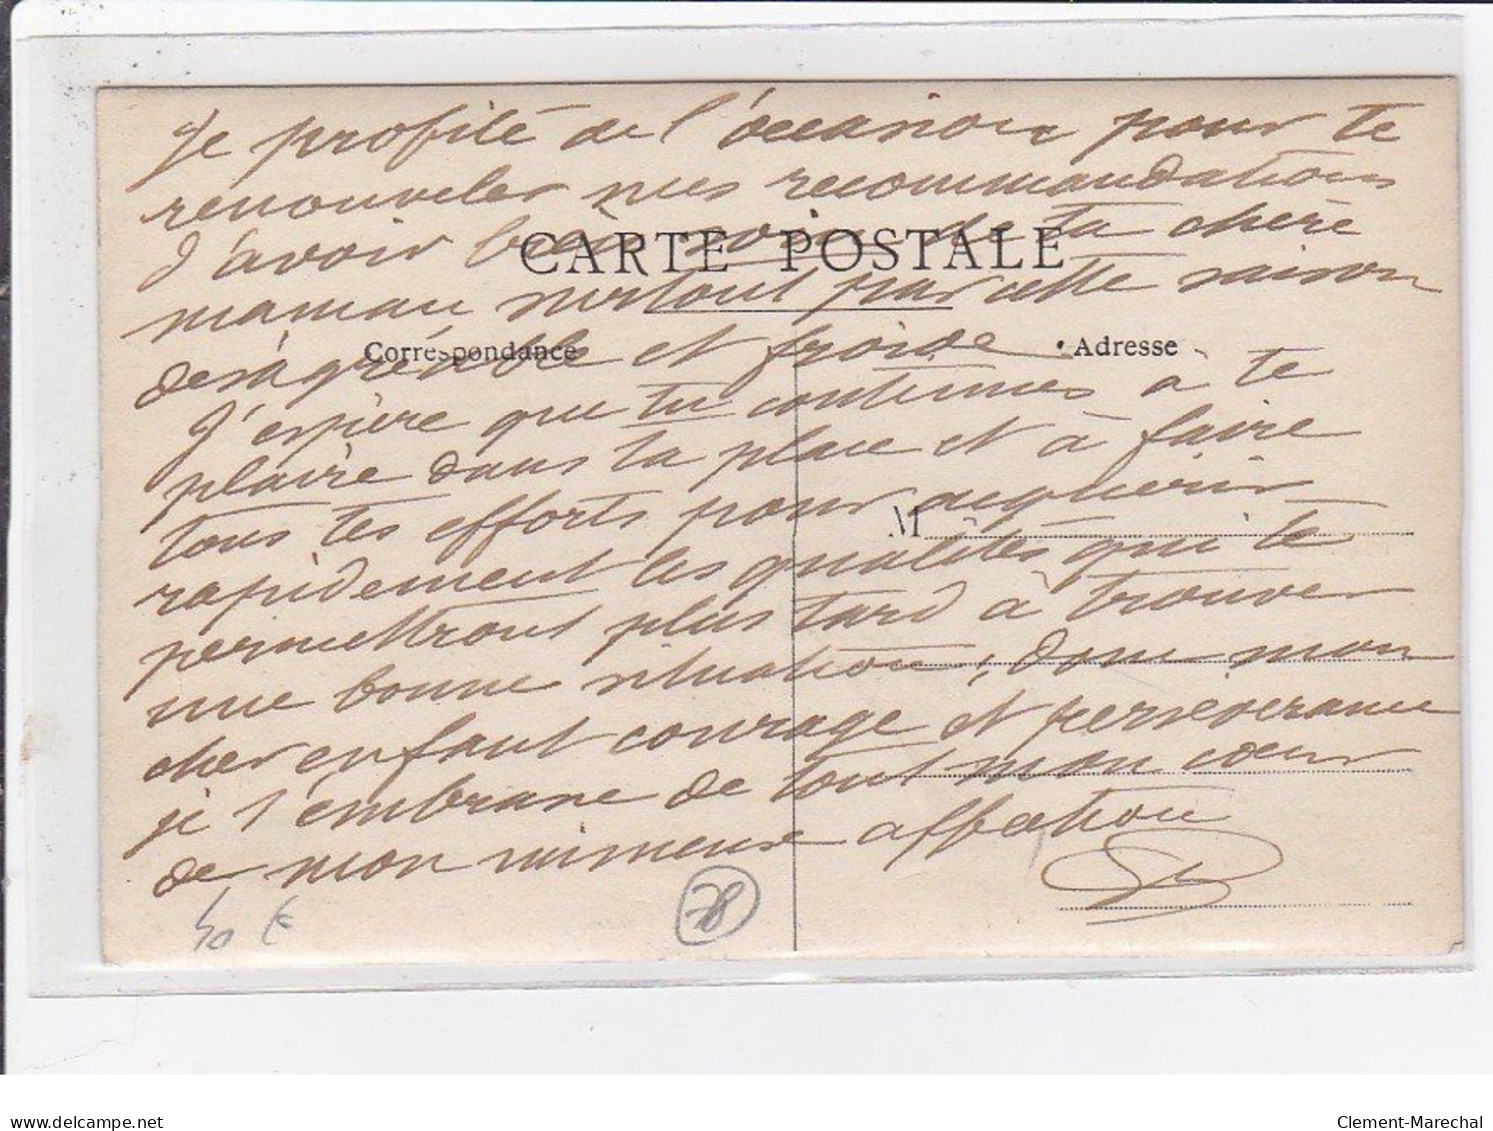 Je profite de l'occasion pour te
renouveler mes recommandations
d'avoir bien soin de ta chère
CARTE POSTALE
maman surtout par cette saison
désagréable et froide
Correspondance
Adresse
J'espère que tu continues à te
plaire dans ta place et à faire
tous tes efforts pour acquérir
M
rapidement les qualités qui te
permettront plus tard à trouver
une bonne situation, donc mon
cher enfant courage et persévérance
je t'embrasse de tout mon cœur
de mon immense affection
40 €
78
Clement-Marechal